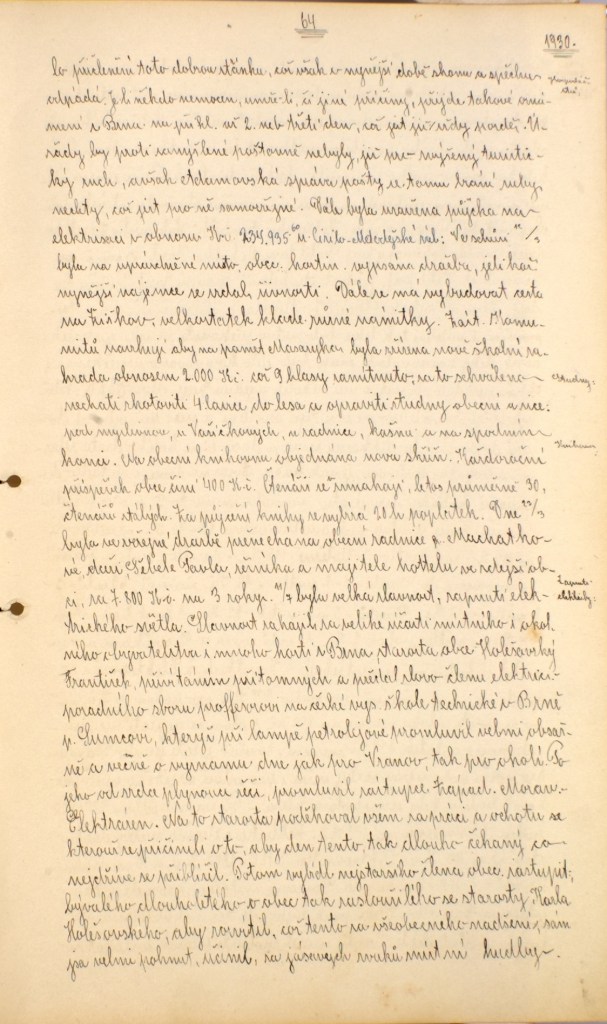 64
1930.
lo přičlenění toto dobrou stánku, což však v nynější době shonu a spěchu
odpadá. Je-li někdo nemocen, umře-li, či jiné příčiny, přijde takové ozná-
mení z Brna na příkl. až 2. neb třetí den, což jest již vždy pozdě. Ú-
řady by proti zamýšlené poštovně nebyly, již pro zvýšený turistic-
ký ruch, avšak Adamovská správa pošty se tomu brání
nechty, což jest pro ně samozřejmé. Dále byla uzavřena půjčka na
elektrisaci v obnosu Kč. 234.935 60 u Cirilo-Metodějské zál: Ve schůzi /3
bylo na uprázdněné místo obec. hostin. vypsána dražba, jelikož
nynější nájemce se vzdal živnosti. Dále se má vybudovat cesta
na Žižkov, velkostatek klade různé námitky. Zást. Komu-
nistů navrhují aby na paměť Masaryka, byla zřízena nově školní za-
hrada obnosem 2.000 Kč. což 9 hlasy zamítnuto, za to schváleno
nechati zhotoviti 4 lavice do lesa a opraviti studny obecní a sice:
pod myslivnou, u Vašíčkových, u radnice, kašnu a na spodním
konci. Na obecní knihovnu objednána nová skříň. Každoroční
příspěvek obce činí 400 Kč. Čtenáři se zmáhají, letos průměrně 30,
čtenářů stálých. Za půjčení knihy se vybírá 20 h poplatek. Dne /3
byla ve veřejné dražbě přenechána obecní radnice p. Machatko-
vé, dceři, Sébele Pavla, řezníka a majitele hottelu ve zdejší ob-
ci, za 7.800 Kč. na 3 roky. /7 byla velká slavnost, zapnutí elek-
trického světla. Slavnost zahájil za veliké účasti místního i okol-
ního obyvatelstva i mnoho hostí z Brna, starosta obce Holešovský
František, přivítáním přítomných a předal slovo členu elektric.
poradního sboru proffesorovi na české vys. škole technické v Brně
p. Sumcovi, kterýž při lampě petrolejové promluvil velmi obsaž-
ně a věcně o významu dne jak pro Vranov, tak pro okolí. Po
jeho od srdce plynoucí řeči, promluvil zástupce Západ. Morav.
Elektráren. Na to starosta poděkoval všem za práci a ochotu se
kterou se přičinili o to, aby den tento, tak dlouho čekaný co
nejdříve se přiblížil. Potom vyzídl nejstaršího člena obec. zastupit.,
bývalého dlouholetého o obec tak zasloužilého se starosty Karla
Holešovského, aby rozsvítil, což tento za všeobecného nadšení, sám
jsa velmi pohnut, učinil, za jásavých zvuků místní hudby.
Studny:
Knihovna
Zapnutí
elektřiny: